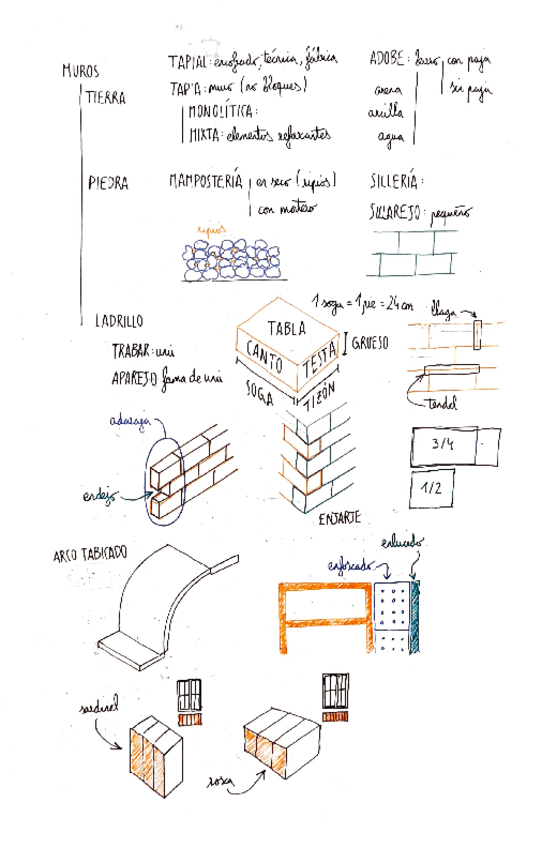 MUROS
TIERRA
TAPIAL: encofrado, técnica, fábrica
TAPIA: muro (no bloques)
MONOLÍTICA:
MIXTA: elementos reforzantes
ADOBE: barro con paja
sin paja
arena
arcilla
agua
PIEDRA
MAMPOSTERÍA en seco (ripios)
con mortero
SILLERÍA:
SILLAREJO: pequeño
ripios
LADRILLO
TRABAR: unir
APAREJO forma de unir
1 soga = 1 pie = 24 cm
TABLA
CANTO
TESTA
GRUESO
SOGA
TIZÓN
llaga
tendel
adaraja
endeja
ENJARJE
3/4
1/2
ARCO TABICADO
enfoscado
enlucido
sardinel
rosca